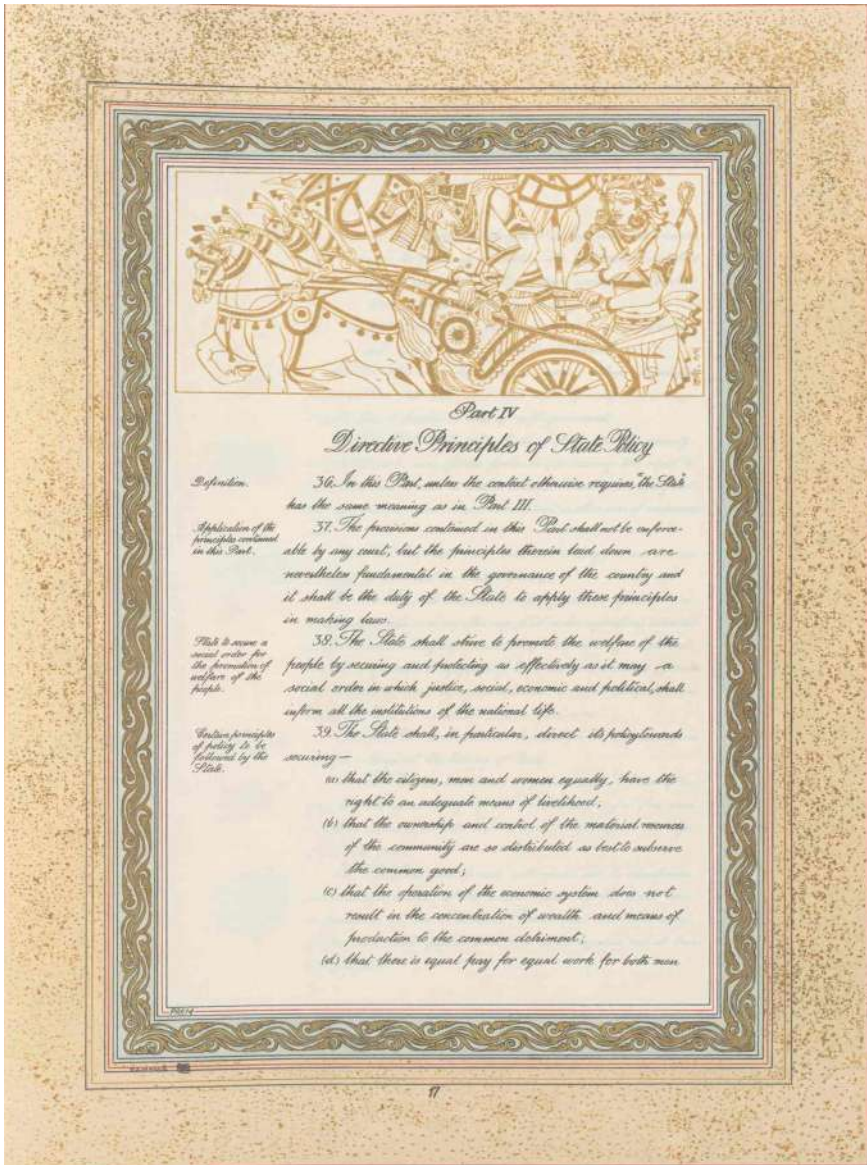 Part IV
Directive Principles of State Policy
Definition.
36. In this Part, unless the context otherwise requires, "the State"
has the same meaning as in Part III.
Application of the
principles contained
in this Part.
37. The provisions contained in this Part shall not be enforce-
able by any court, but the principles therein laid down are
nevertheless fundamental in the governance of the country and
it shall be the duty of the State to apply these principles
in making laws.
State to secure a
social order for
the promotion of
welfare of the
people.
38. The State shall strive to promote the welfare of the
people by securing and protecting as effectively as it may a
social order in which justice, social, economic and political, shall
inform all the institutions of the national life.
Certain principles
of policy to be
followed by the
State.
39. The State shall, in particular, direct its policy towards
securing—
(a) that the citizens, men and women equally, have the
right to an adequate means of livelihood;
(b) that the ownership and control of the material resources
of the community are so distributed as best to subserve
the common good;
(c) that the operation of the economic system does not
result in the concentration of wealth and means of
production to the common detriment;
(d) that there is equal pay for equal work for both men
17